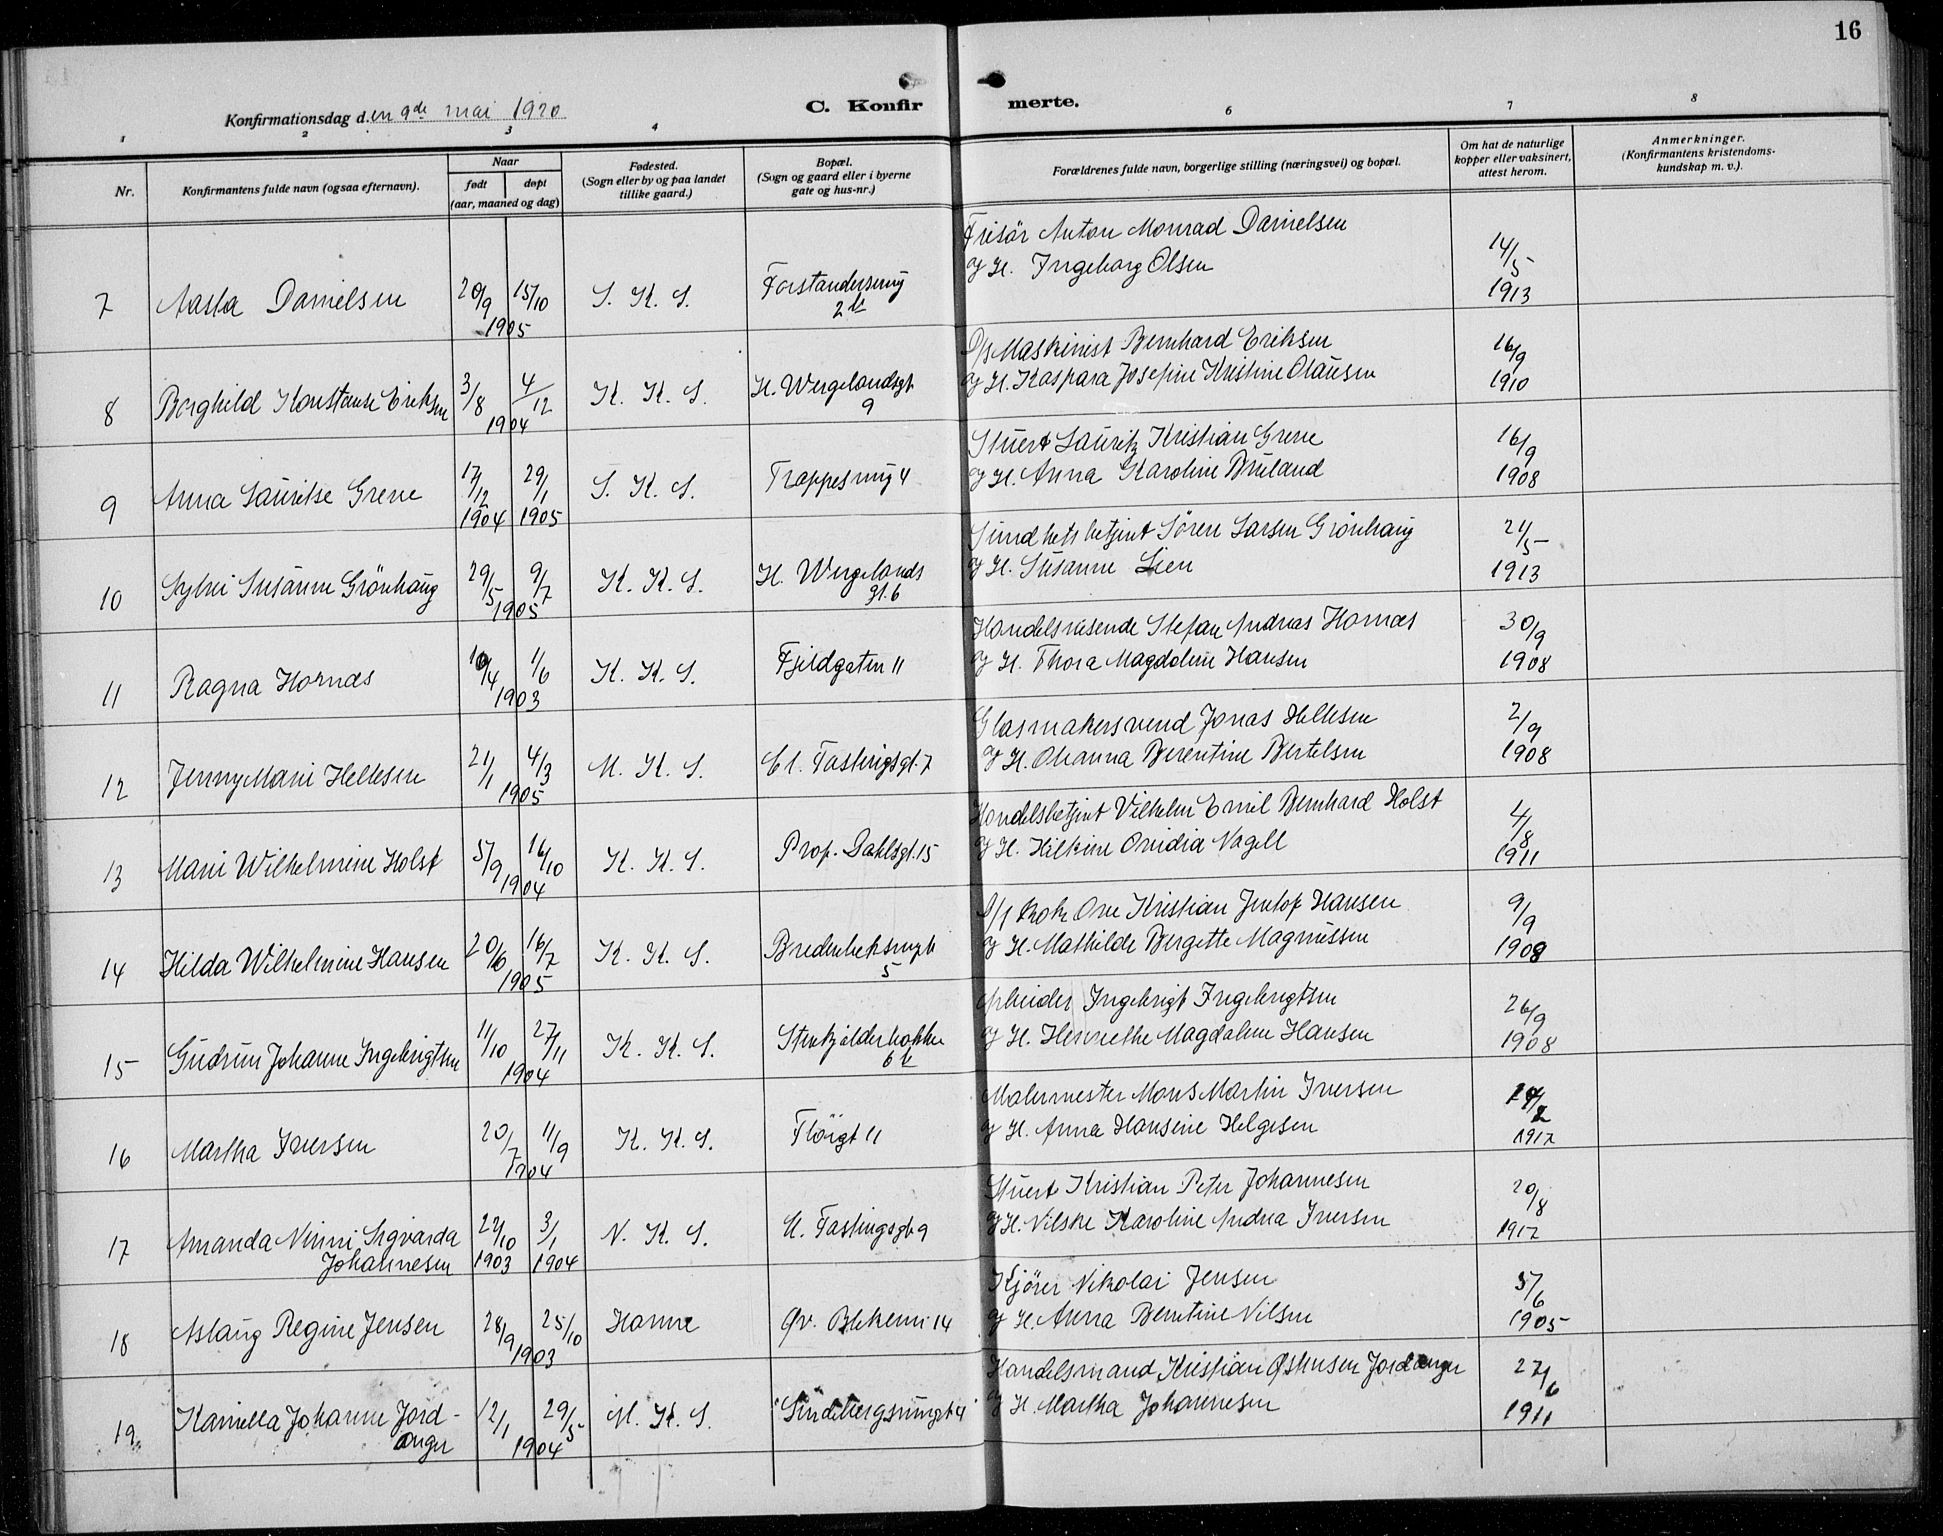 16
Konfirmationsdag den 9de mai 1920
C. Konfirmerte.
1 2 3 4 6 7 8
Nr.
Konfirmantens fulde navn (ogsaa efternavn).
Naar
født døpt
(aar, maaned og dag)
Fødested.
(Sogn eller by og paa landet
tillike gaard.)
Bopæl.
(Sogn og gaard eller i byerne
gate og hus-nr.)
Forældrenes fulde navn, borgerlige stilling (næringsvei) og bopæl.
Om hat de naturlige
kopper eller vaksinert,
attest herom.
Anmerkninger.
(Konfirmantens kristendoms-
kundskap m. v.).
7 Aasta Danielsen 20/9 15/10 1905 S. K. S. Forstandersmug 2b
Frisör Anton Monrad Danielsen
og H. Ingeborg Olsen
14/5 1913
8 Borghild Konstanse Eriksen 3/8 4/12 1904 K. K. S. H. Wergelandsgt 9
D/s Maskinist Bernhard Eriksen
og H. Kaspara Josefine Kristine Olausen
16/9 1910
9 Anna Lauritse Grene 17/12 1904 29/1 1905 S. K. S. Trappesmug 4
Stuert Lauritz Kristian Grene
og H. Anna Karoline Bruland
16/9 1908
10 Sylvi Susanne Grönhaug 29/5 9/7 1905 K. K. S. H. Wergelands gt. 6
Sundhetsbetjent Sören Larsen Grönhaug
og H. Susanne Lien
21/5 1913
11 Ragna Hornæs 10/4 11/6 1903 K. K. S. Fjeldgaten 11
Handelsreisende Stefan Andreas Hornæs
og H. Thora Magdalene Hansen
30/9 1908
12 Jenny Marie Hellesen 21/1 4/3 1905 M. K. S. Cl. Fastingsgt. 7
Glasmakersvend Jonas Hellesen
og H. Ohanna Berentine Bertelsen
2/9 1908
13 Marie Wilhelmine Holst 5/9 16/10 1904 K. K. S. Prof. Dahlsgt. 15
Handelsbetjent Vilhelm Emil Bernhard Holst
og H. Hilkine Ovidia Nagell
4/8 1911
14 Hilda Wilhelmine Hansen 20/6 16/7 1905 K. K. S. Bredenbeksmgt 5
D/s kok Ove Kristian Jentof Hansen
og H. Mathilde Bergette Magnussen
9/9 1908
15 Gudrun Johanne Ingebrigtsen 11/10 27/11 1904 K. K. S. Stenkjælderbakken 6b
Arbeider Ingebrigt Ingebrigtsen
og H. Henriette Magdalene Hansen
26/9 1908
16 Martha Iversen 20/7 11/9 1904 K. K. S. Flöigt 11
Malermester Mons Martin Iversen
og H. Anna Hansine Helgesen
1917
17 Amanda Ninni Sigvarda
Johannesen 22/10 1903 3/1 1904 N. K. S. Cl. Fastingsgt 9
Stuert Kristian Peter Johannesen
og H. Nilske Karoline Andrea Iversen
20/8 1917
18 Aslaug Regine Jensen 28/9 25/10 1903 Hamre Øv. Blekevei 14
Kjörer Nikolai Jensen
og H. Anna Berntine Nilsen
5/6 1905
19 Kamilla Johanne Jord-
anger 12/1 29/5 1904 M. K. S. Sindebergsmugt 4
Handelsmand Kristian Østensen Jordanger
og H. Martha Johannesen
27/6 1911